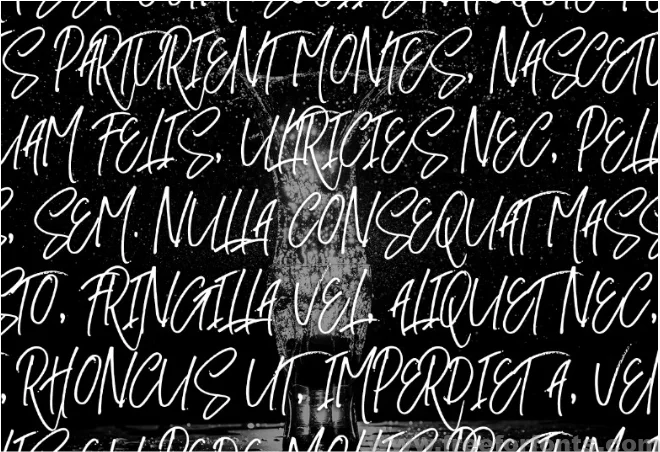 S PARTURIENT MONTES, NASCETU
UAM FELIS, ULTRICIES NEC, PELL
, SEM. NULLA CONSEQUAT MASS
STO, FRINGILLA VEL, ALIQUET NEC,
, RHONCUS UT, IMPERDIET A, VEN
PEDE MOLLIS PRETIUM